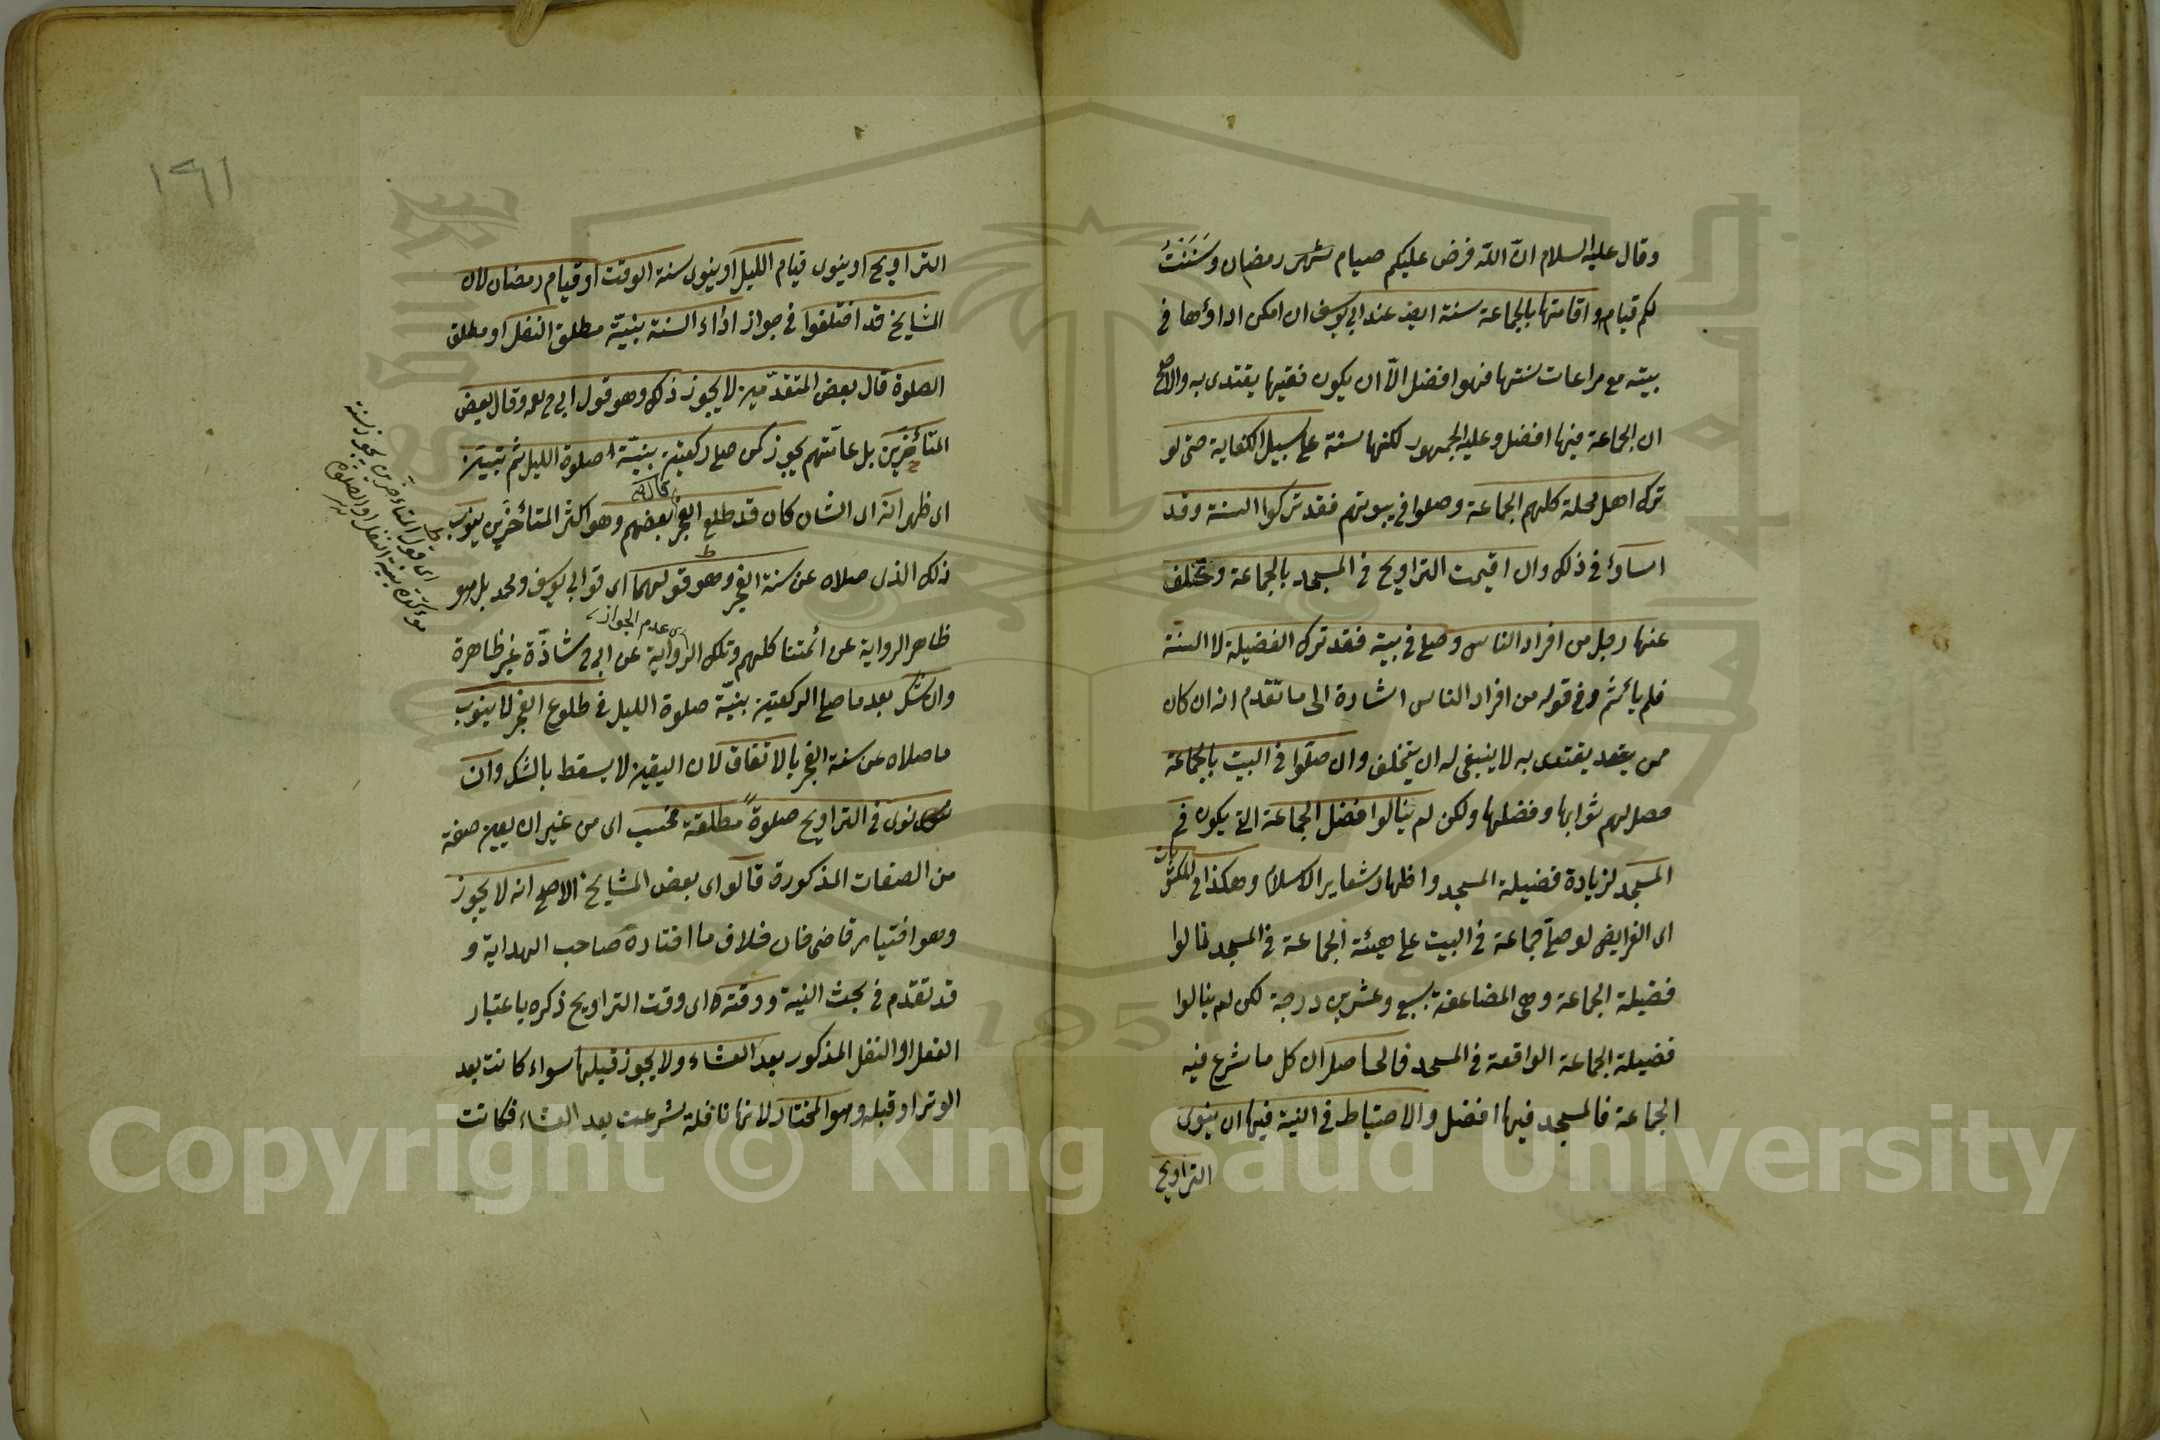 وقال عليه السلام ان الله فرض عليكم صيام شهر رمضان وسَنَنْتُ
لكم قيامه واقامتها بالجماعة سنة ايضا عند ابى يوسف ان امكن اداؤها فى
بيته مع مراعات سنتها فهو افضل الّا ان يكون فقيها يقتدى به والاصح
ان الجماعة فيها افضل وعليه الجمهور لكنها سنة على سبيل الكفاية حتى لو
ترك اهل محلة كلهم الجماعة وصلوا فى بيوتهم فقد تركوا السنة وقد
اساؤا فى ذلك وان اقيمت التراويح فى المسجد بالجماعة وتخلف
عنها رجل من افراد الناس وصلى فى بيته فقد ترك الفضيلة لا السنة
فلم يأثم وفى قوله من افراد الناس اشارة الى ما تقدم انه ان كان
ممن يقتدى به لا ينبغى له ان يتخلف وان صلّوا فى البيت بالجماعة
حصل لهم ثوابها وفضلها ولكن لم ينالوا فضل الجماعة التى يكون فى
المسجد لزيادة فضيلة المسجد واظهار شعاير الاسلام وهكذا فى المكتوبات
اى الفرايض لو صلّى جماعة فى البيت على هيئة الجماعة فى المسجد نالوا
فضيلة الجماعة وهى المضاعفة بسبع وعشرين درجة لكن لم ينالوا
فضيلة الجماعة الواقعة فى المسجد فالحاصل ان كل ما شرع فيه
الجماعة فالمسجد فيها افضل والاحتياط فى النية فيها ان ينوى
التراويح
١٩١
التراويح او ينوى قيام الليل او ينوى سنة الوقت او قيام رمضان لان
المشايخ قد اختلفوا فى جواز اداء السنة بنيّة مطلق النفل او مطلق
الصلوة قال بعض المتقدّمين لا يجوز ذلك وهو قول ابى ح وقال بعض
المتأخرين بل عامّتهم يجوز كمن صلى ركعتين بنيّة صلوة الليل ثم تبيّن
اى ظهر انه اى الشان كان قد طلع الفجر بعضهم وهو اكثر المتأخرين ينوب
ذلك الذى صلاه عن سنة الفجر وهو قولهما اى قول ابى يوسف ومحمد بل هو
اى عدم الجواز
ظاهر الرواية عن ائمتنا كلهم وتلك الرواية عن ابى ح شاذّة غير ظاهرة
وان شك بعد ما صلى الركعتين بنيّة صلوة الليل فى طلوع الفجر لا ينوب
ما صلاه عن سنة الفجر بالاتفاق لان اليقين لا يسقط بالشك وان
نوى فى التراويح صلوةً مطلقة فحسب اى من غير ان يعين صفة
من الصفات المذكورة قالوا اى بعض المشايخ الاصح انه لا يجوز
وهو اختيار قاضى خان خلاف ما اختاره صاحب الهداية و
قد تقدّم فى بحث النية ووقته اى وقت التراويح ذكره باعتبار
الفعل او النفل المذكور بعد العشاء ولا يجوز قبلها سواء كانت بعد
الوتر او قبله وهو المختار لانها نافلة شرعت بعد العشاء فكانت
اى قول المتأخرين يجوز سنة
مؤكدة بنية النفل او الصلوة